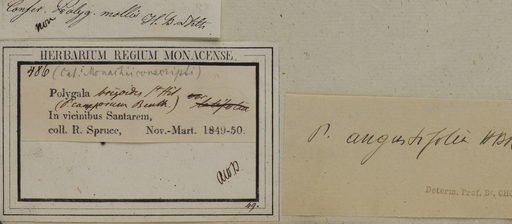 Confer. Polyg. mollis H. B. & Kth.
non
HERBARIUM REGIUM MONACENSE.
486 (Cat: Monachii conscripti)
Polygala brizoides St Hil var
(P. camporum Benth.) latifolia
In vicinibus Santarem,
coll. R. Spruce, Nov.-Mart. 1849-50.
AWB
49.
P. angustifolia HBK
Determ. Prof. Dr CHO